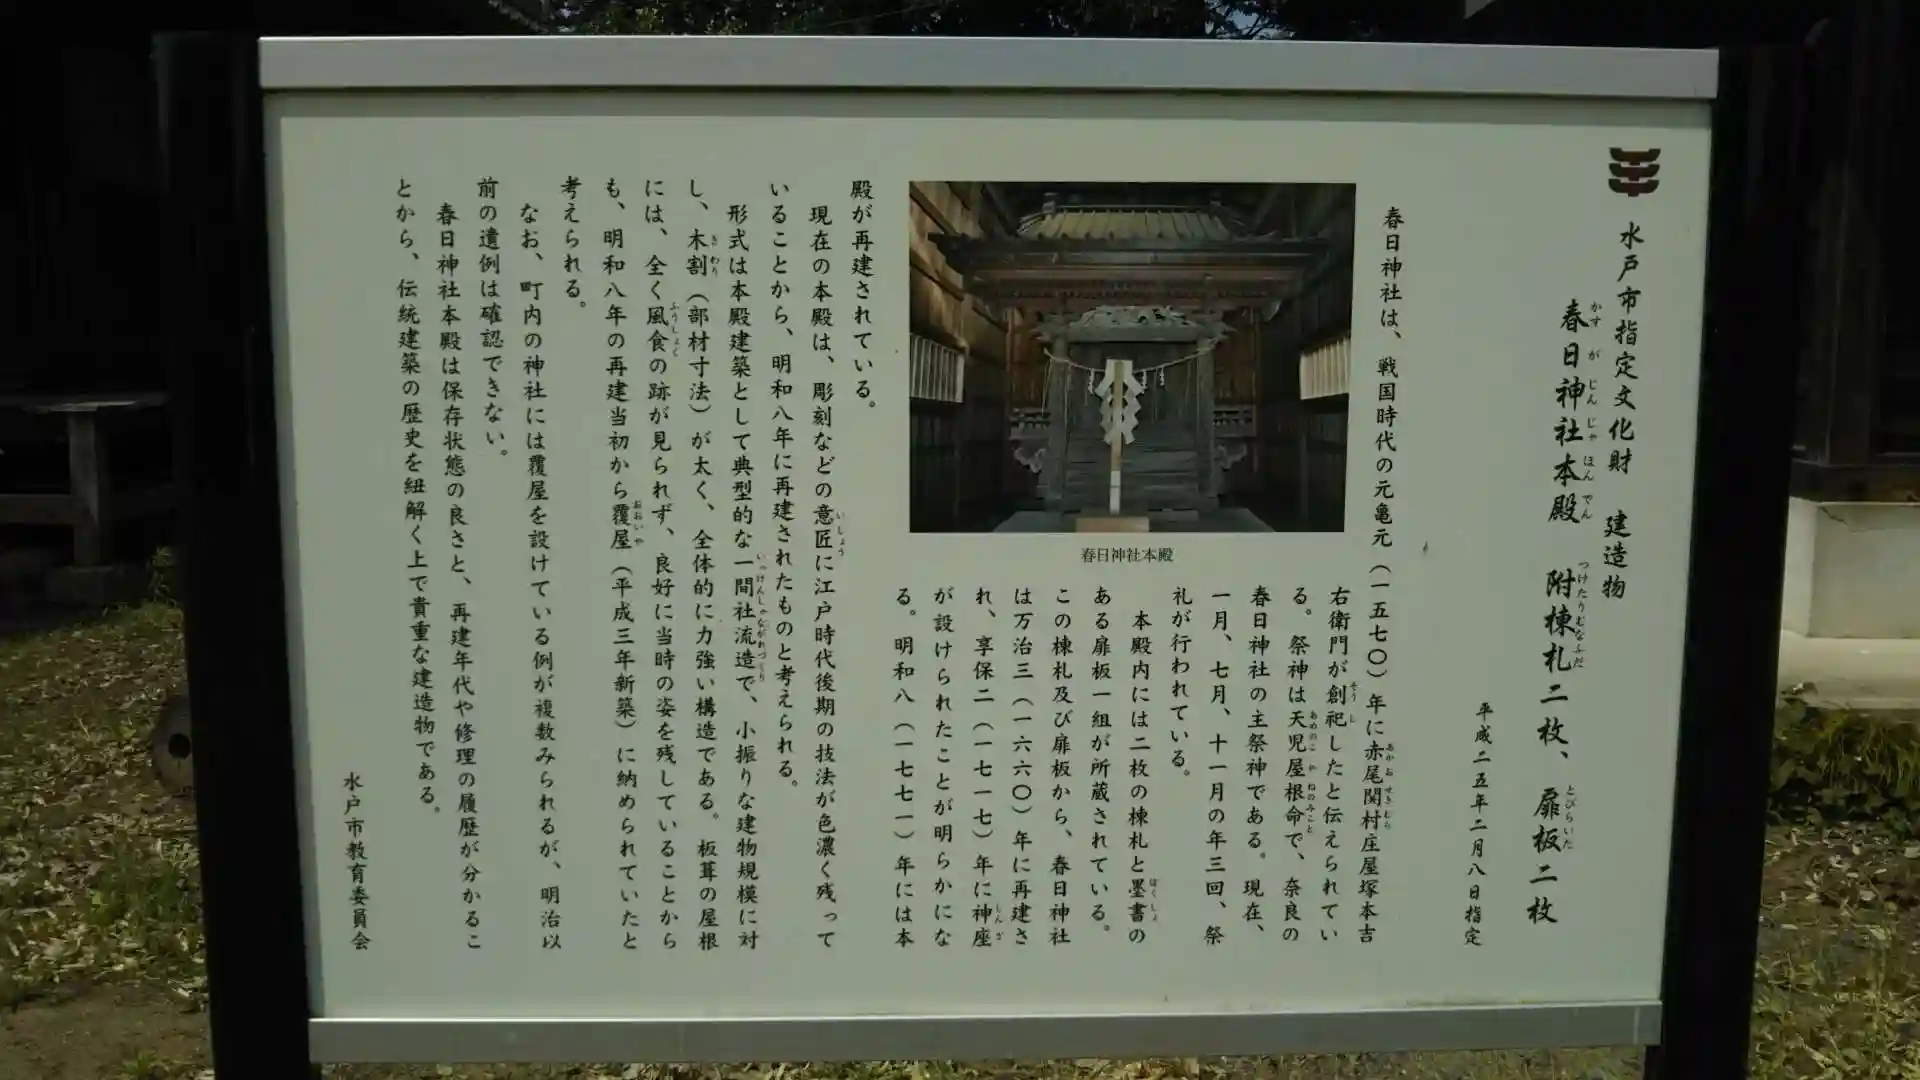 水戸市指定文化財　建造物
春日神社本殿　附棟札二枚、扉板二枚
平成二五年二月八日指定
春日神社は、戦国時代の元亀元（一五七〇）年に赤尾関村庄屋塚本吉
右衛門が創祀したと伝えられてい
る。祭神は天児屋根命で、奈良の
春日神社の主祭神である。現在、
一月、七月、十一月の年三回、祭
礼が行われている。
本殿内には二枚の棟札と墨書の
ある扉板一組が所蔵されている。
この棟札及び扉板から、春日神社
は万治三（一六六〇）年に再建さ
れ、享保二（一七一七）年に神座
が設けられたことが明らかにな
る。明和八（一七七一）年には本
殿が再建されている。
現在の本殿は、彫刻などの意匠に江戸時代後期の技法が色濃く残って
いることから、明和八年に再建されたものと考えられる。
形式は本殿建築として典型的な一間社流造で、小振りな建物規模に対
し、木割（部材寸法）が太く、全体的に力強い構造である。板葺の屋根
には、全く風食の跡が見られず、良好に当時の姿を残していることから
も、明和八年の再建当初から覆屋（平成三年新築）に納められていたと
考えられる。
なお、町内の神社には覆屋を設けている例が複数みられるが、明治以
前の遺例は確認できない。
春日神社本殿は保存状態の良さと、再建年代や修理の履歴が分かるこ
とから、伝統建築の歴史を紐解く上で貴重な建造物である。
水戸市教育委員会
春日神社本殿
かすがじんじゃほんでん
つけたりむなふだ
とびらいた
そうし
あかおせきむら
あめのこやねのみこと
ぼくしょ
しんざ
いしょう
いっけんしゃながれづくり
きわり
ふうしょく
おおいや